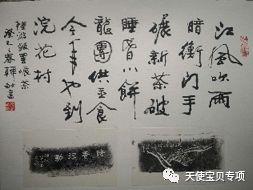 江風吹雨
暗衡門手
碾新茶破
睡昏小餅
龍團供玉食
今年也到
浣花村
天使宝贝专项